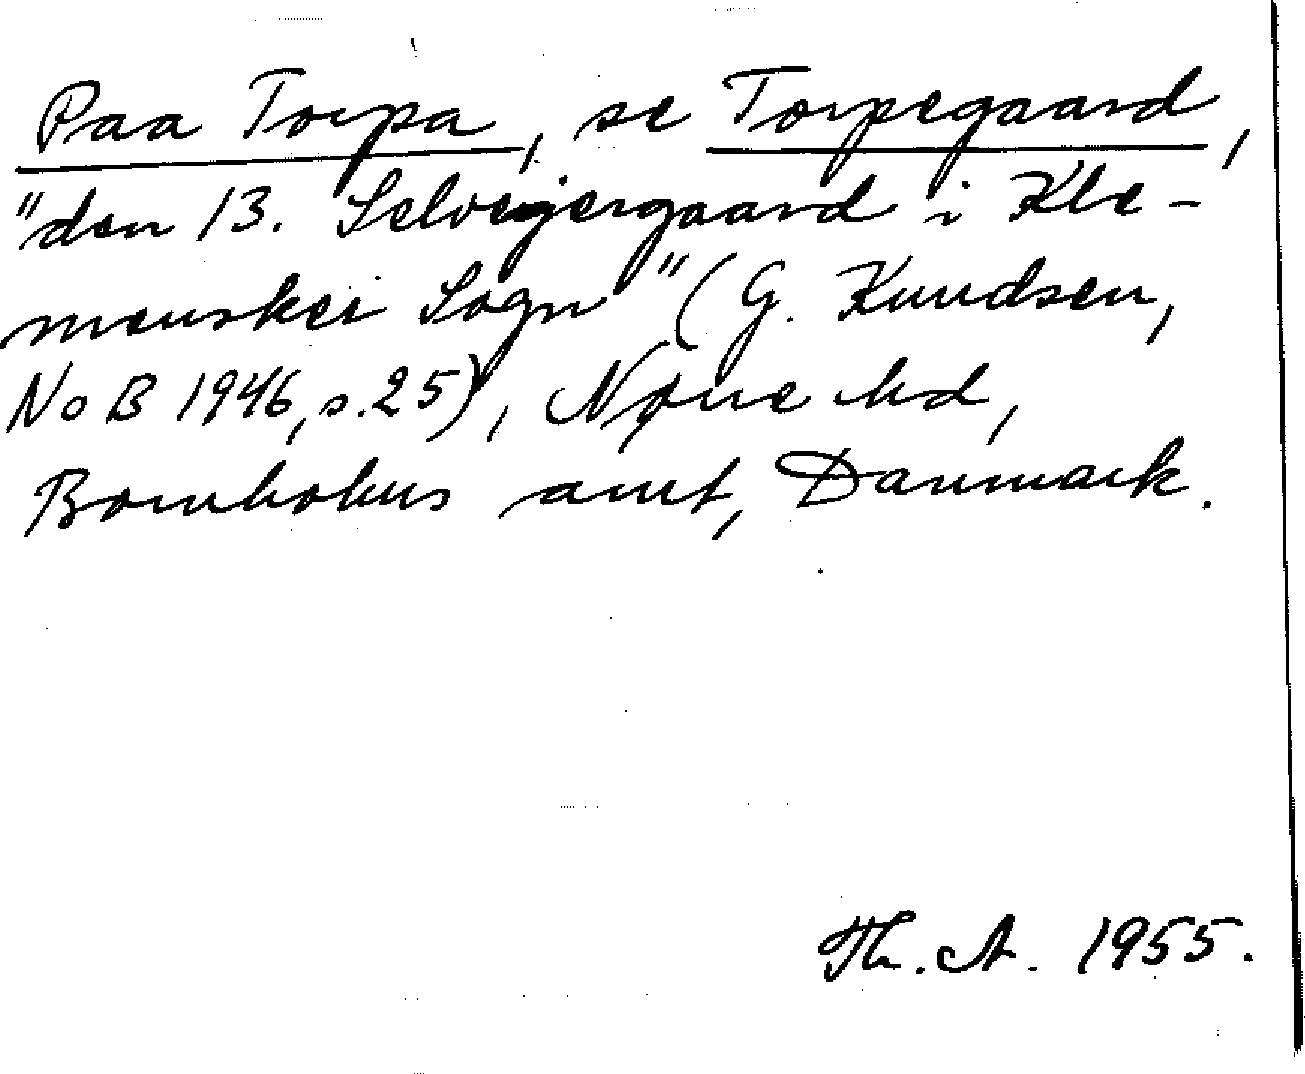 Paa Torpa, se Torpegaard,
"den 13. Selvejergaard i Kle-
mensker Sogn" (G. Knudsen,
NoB 1946, s. 25), Nørre hd,
Bornholms amt, Danmark.
Th. A. 1955.